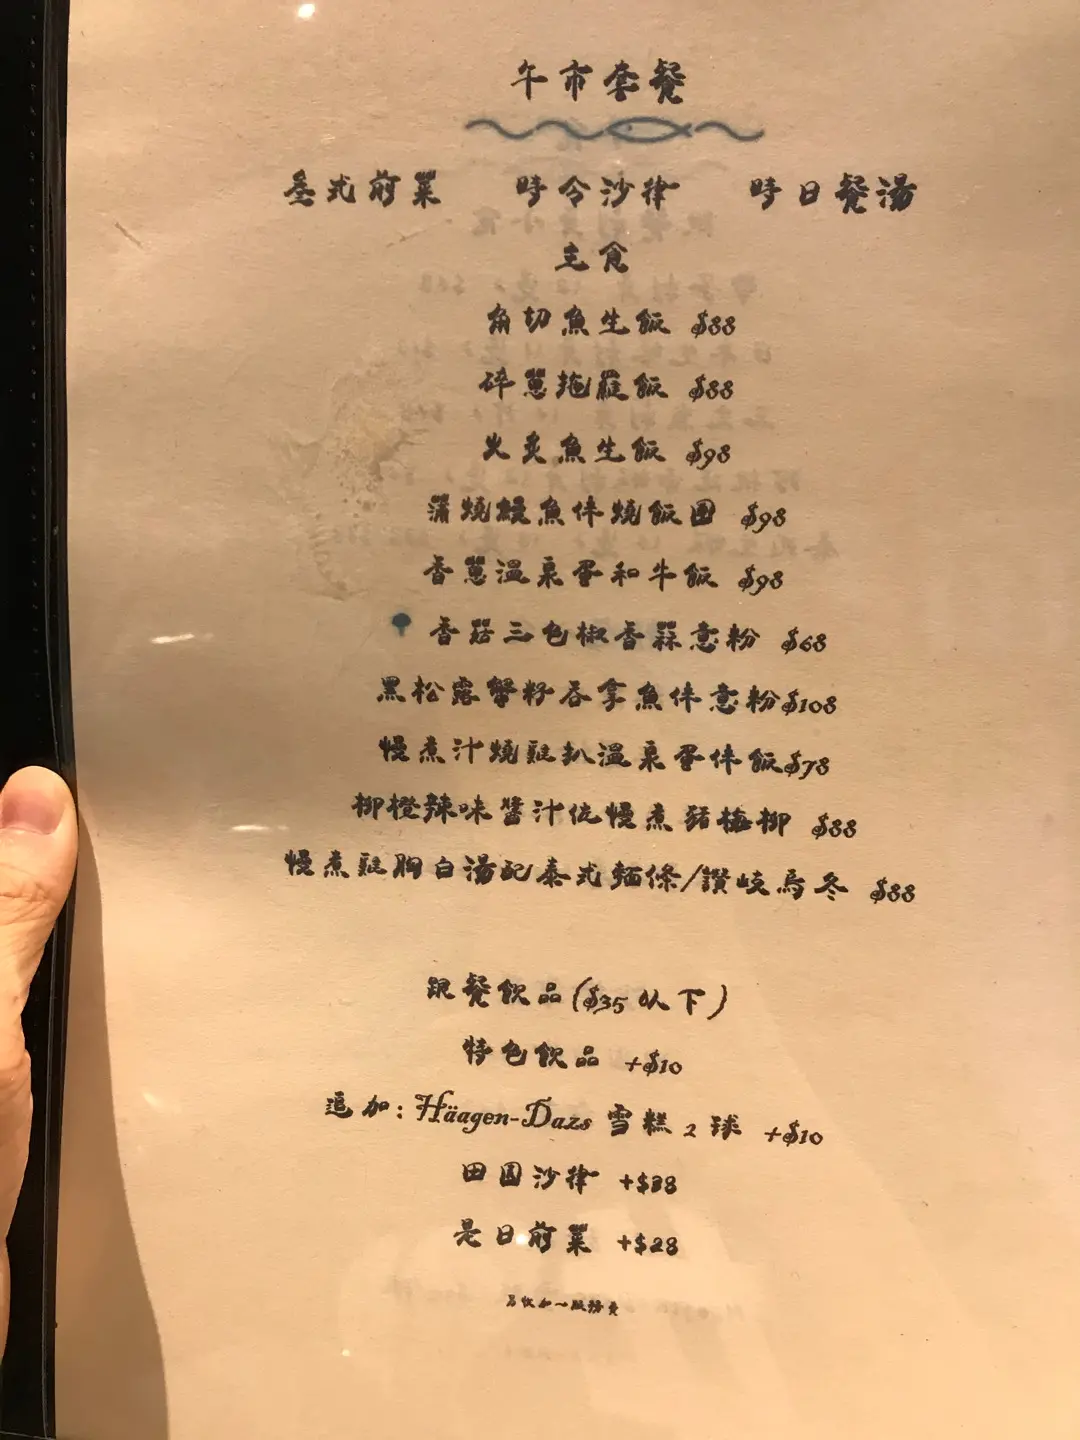 午市套餐
叁式前菜 時令沙律 時日餐湯
主食
角切魚生飯 $88
碎蔥拖羅飯 $88
火炙魚生飯 $98
蒲燒鰻魚伴燒飯团 $98
香蔥溫泉蛋和牛飯 $98
香菇三色椒香蒜意粉 $68
黑松露蟹籽吞拿魚伴意粉$108
慢煮汁燒雞扒溫泉蛋伴飯$78
柳橙辣味醬汁伴慢煮豬梅柳 $88
慢煮雞胸白湯配泰式麵條/讚岐烏冬 $88
跟餐飲品($35以下)
特色飲品 +$10
追加:Häagen-Dazs 雪糕 2 球 +$10
田園沙律 +$38
是日前菜 +$28
另收加一服務費